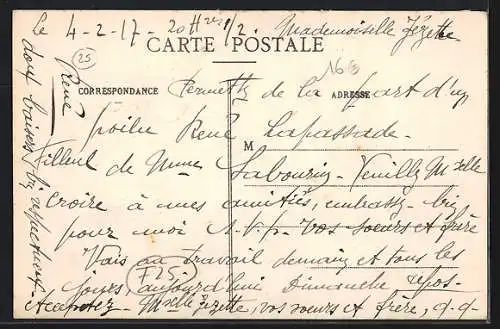 Le 4-2-17- 20 Hres 1/2. Mademoiselle Zézette
CARTE POSTALE
25
163
CORRESPONDANCE
ADRESSE
Permettez de la part d'un
poilu René Lapassade-
M
filleul de Mme Labourin- Veuillez Mzelle
croire à mes amitiés, embrassez- bien
pour moi S.V.P- vos soeurs et frère
Vais au travail demain et tous les
jours, aujourd'hui Dimanche repos-
F25
Acceptez- Mzelle Zézette, vos soeurs et frère,
doux baisers bien respectueux
René